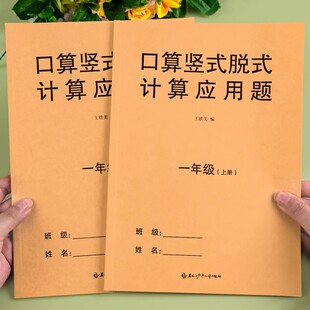 口算竖式
计算应用
王晓
一年级
班 级:
姓 名:
口算竖式脱式
计算应用题
编
一年级（上册）
班 级:
姓 名: